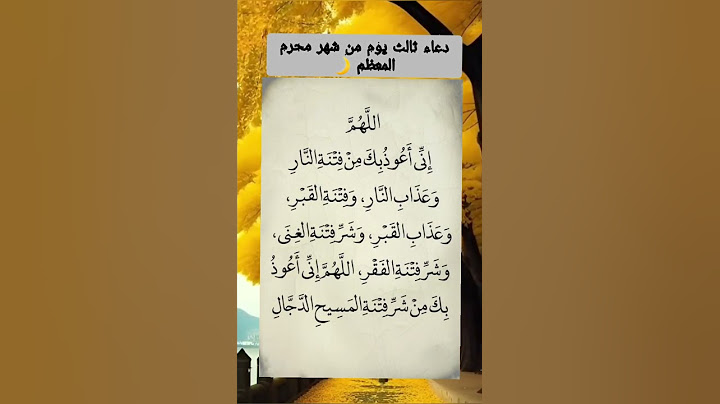 دعاء ثالث يوم من شهر محرم
المعظم 🌙
اللَّهُمَّ
إِنِّي أَعُوذُ بِكَ مِنْ فِتْنَةِ النَّارِ
وَعَذَابِ النَّارِ، وَفِتْنَةِ القَبْرِ،
وَعَذَابِ القَبْرِ، وَشَرِّ فِتْنَةِ الغِنَى،
وَشَرِّ فِتْنَةِ الفَقْرِ، اللَّهُمَّ إِنِّي أَعُوذُ
بِكَ مِنْ شَرِّ فِتْنَةِ المَسِيحِ الدَّجَّالِ